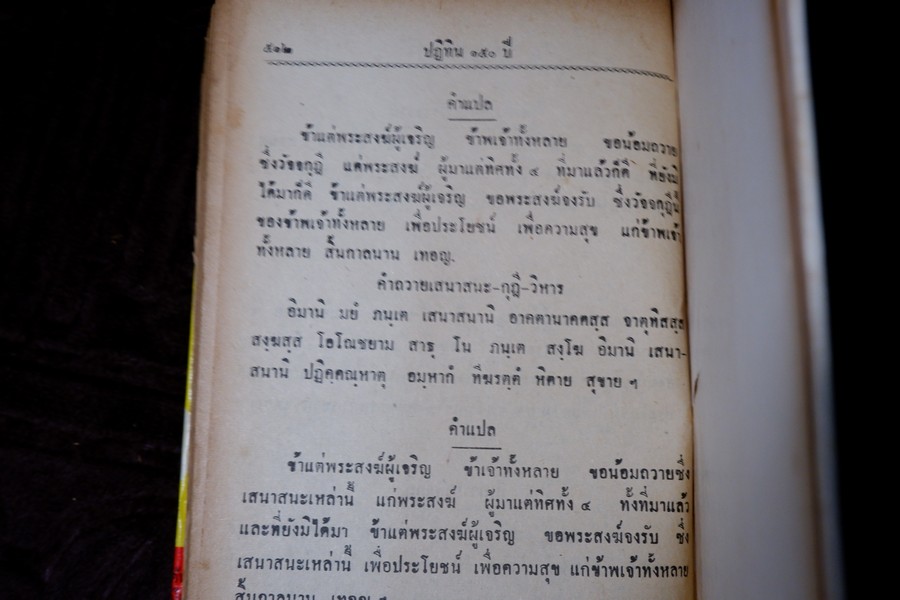 ๕๑๒ ปฏิทิน ๑๕๐ ปี
คำแปล
ข้าแต่พระสงฆ์ผู้เจริญ ข้าพเจ้าทั้งหลาย ขอน้อมถวาย
ซึ่งวัจจกุฎี แด่พระสงฆ์ ผู้มาแต่ทิศทั้ง ๔ ที่มาแล้วก็ดี ที่ยังมิ
ได้มาก็ดี ข้าแต่พระสงฆ์ผู้เจริญ ขอพระสงฆ์จงรับ ซึ่งวัจจกุฎีนี้
ของข้าพเจ้าทั้งหลาย เพื่อประโยชน์ เพื่อความสุข แก่ข้าพเจ้า
ทั้งหลาย สิ้นกาลนาน เทอญ.
คำถวายเสนาสนะ-กุฎี-วิหาร
อิมานิ มยํ ภนฺเต เสนาสนานิ อาคตานาคตสฺส จาตุทิสสฺส
สงฺฆสฺส โอโณชยาม สาธุ โน ภนฺเต สงฺโฆ อิมานิ เสนา-
สนานิ ปฏิคฺคณฺหาตุ อมฺหากํ ทีฆรตฺตํ หิตาย สุขาย ฯ
คำแปล
ข้าแต่พระสงฆ์ผู้เจริญ ข้าเจ้าทั้งหลาย ขอน้อมถวายซึ่ง
เสนาสนะเหล่านี้ แก่พระสงฆ์ ผู้มาแต่ทิศทั้ง ๔ ทั้งที่มาแล้ว
และที่ยังมิได้มา ข้าแต่พระสงฆ์ผู้เจริญ ขอพระสงฆ์จงรับ ซึ่ง
เสนาสนะเหล่านี้ เพื่อประโยชน์ เพื่อความสุข แก่ข้าพเจ้าทั้งหลาย
สิ้นกาลนาน เทอญ ฯ